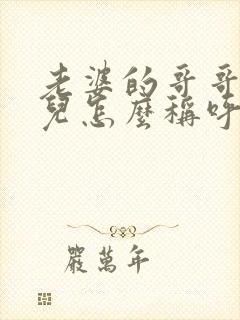 老婆的哥哥
兒怎麼稱呼
嚴萬年